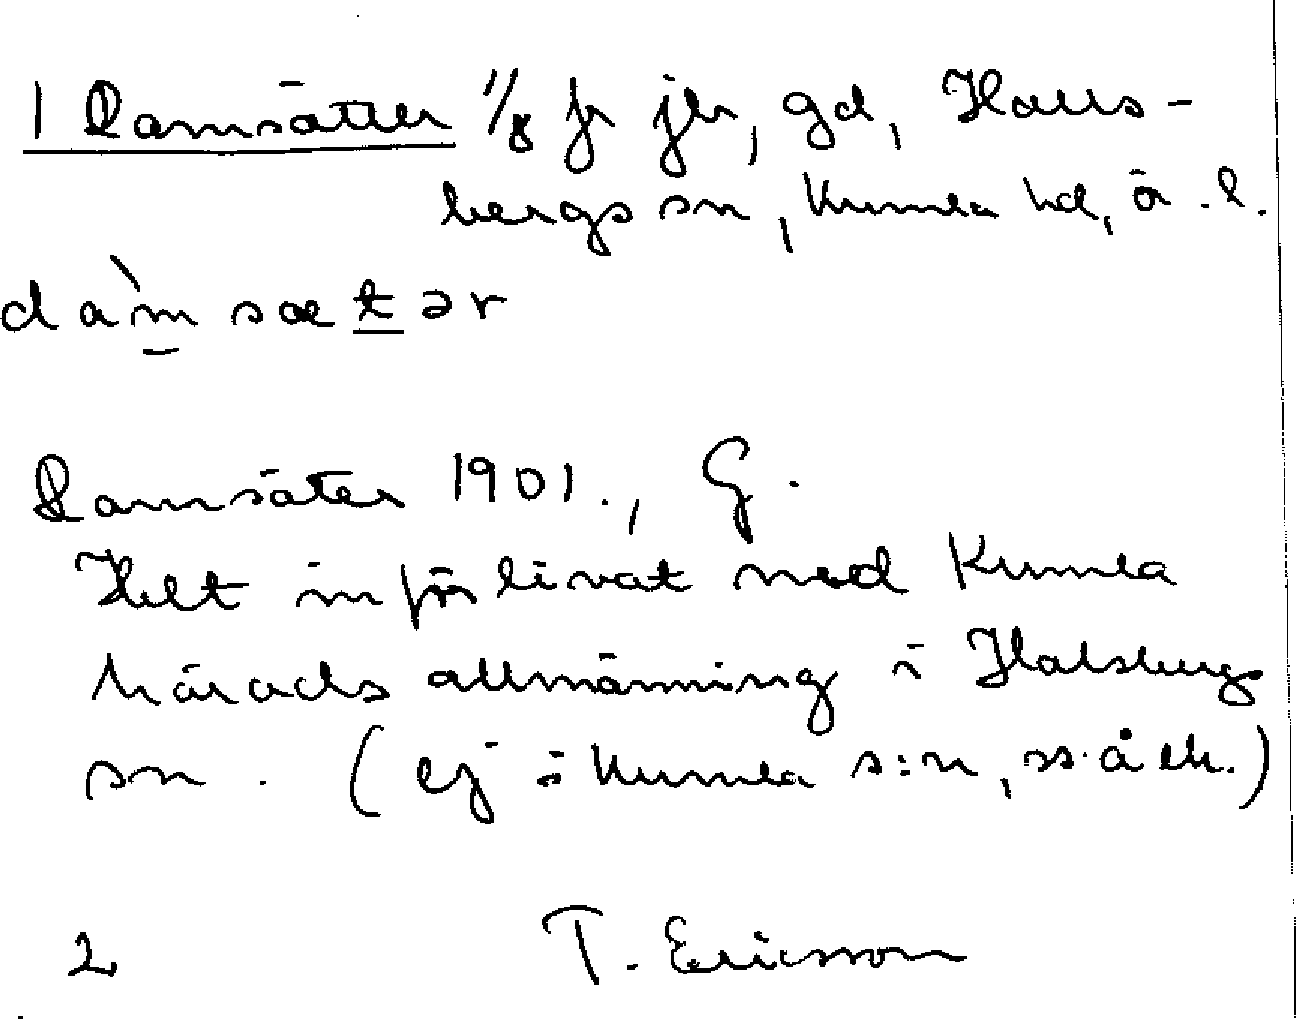 1 Damsätter 1/8 fr jbr, gd, Halls-
bergs sn, Kumla hd, ö.l.
da`msætər
Damsäter 1901., G.
Helt införlivat med Kumla
härads allmänning i Hallsbergs
sn. (ej i Kumla s:n, ss å ek.)
2 T. Ericsson